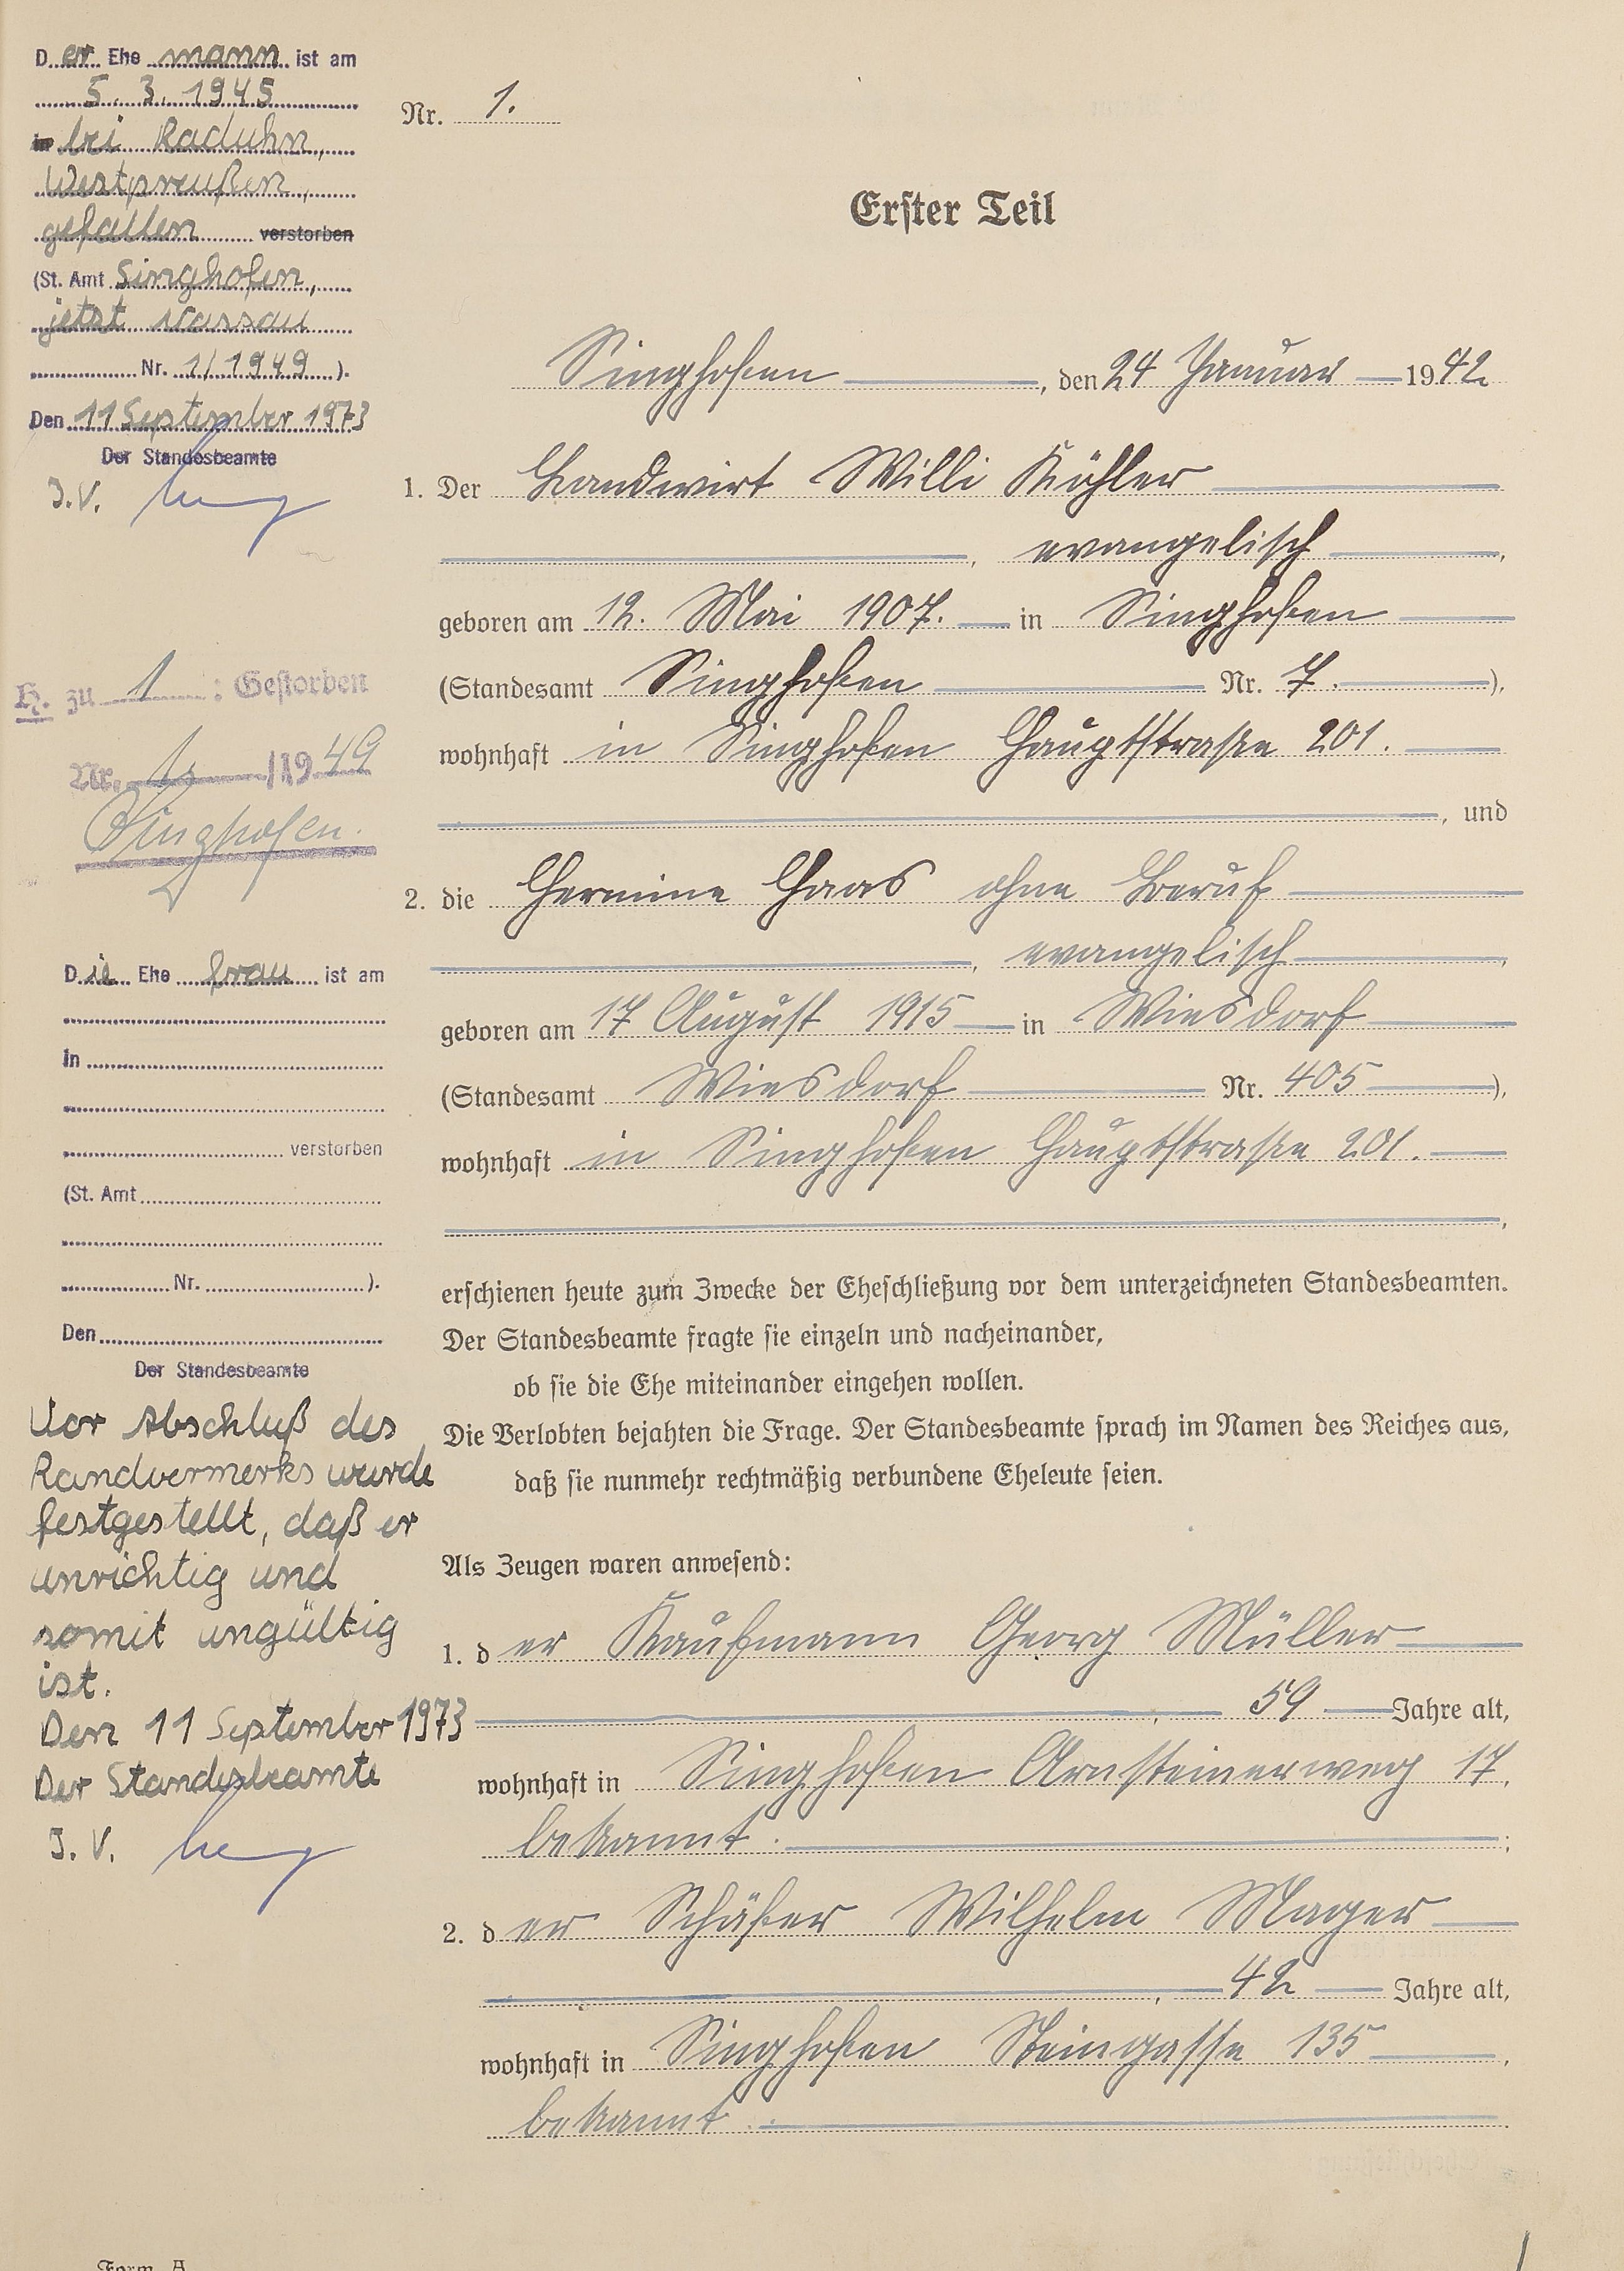 Der Ehemann ist am
5. 3. 1945
in bei Raduhn,
Westpreußen,
gefallen verstorben
(St. Amt Singhofen,
jetzt Nassau
Nr. 1/1949).
Den 11 September 1973
Der Standesbeamte
J.V.
H. zu 1 : Gestorben
Nr. 1 /1949
Singhofen.
Die Ehefrau ist am
In
verstorben
(St. Amt
Nr. ).
Den
Der Standesbeamte
Vor Abschluß des
Randvermerks wurde
festgestellt, daß er
unrichtig und
somit ungültig
ist.
Den 11 September 1973
Der Standesbeamte
J. V.
Nr. 1.
Erster Teil
Singhofen, den 24 Januar 1942
1. Der Landwirt Willi Köhler
, evangelisch,
geboren am 12. Mai 1907. in Singhofen
(Standesamt Singhofen Nr. 7.),
wohnhaft in Singhofen Hauptstraße 201.
, und
2. die Hermine Haas ohne Beruf
, evangelisch,
geboren am 17 August 1915 in Wiesdorf
(Standesamt Wiesdorf Nr. 405),
wohnhaft in Singhofen Hauptstraße 201.
,
erschienen heute zum Zwecke der Eheschließung vor dem unterzeichneten Standesbeamten.
Der Standesbeamte fragte sie einzeln und nacheinander,
ob sie die Ehe miteinander eingehen wollen.
Die Verlobten bejahten die Frage. Der Standesbeamte sprach im Namen des Reiches aus,
daß sie nunmehr rechtmäßig verbundene Eheleute seien.
Als Zeugen waren anwesend:
1. der Kaufmann Georg Müller
, 59 Jahre alt,
wohnhaft in Singhofen Arnsteinerweg 17.
bekannt. ;
2. der Schäfer Wilhelm Mager
, 42 Jahre alt,
wohnhaft in Singhofen Steingasse 135,
bekannt.
Form. A